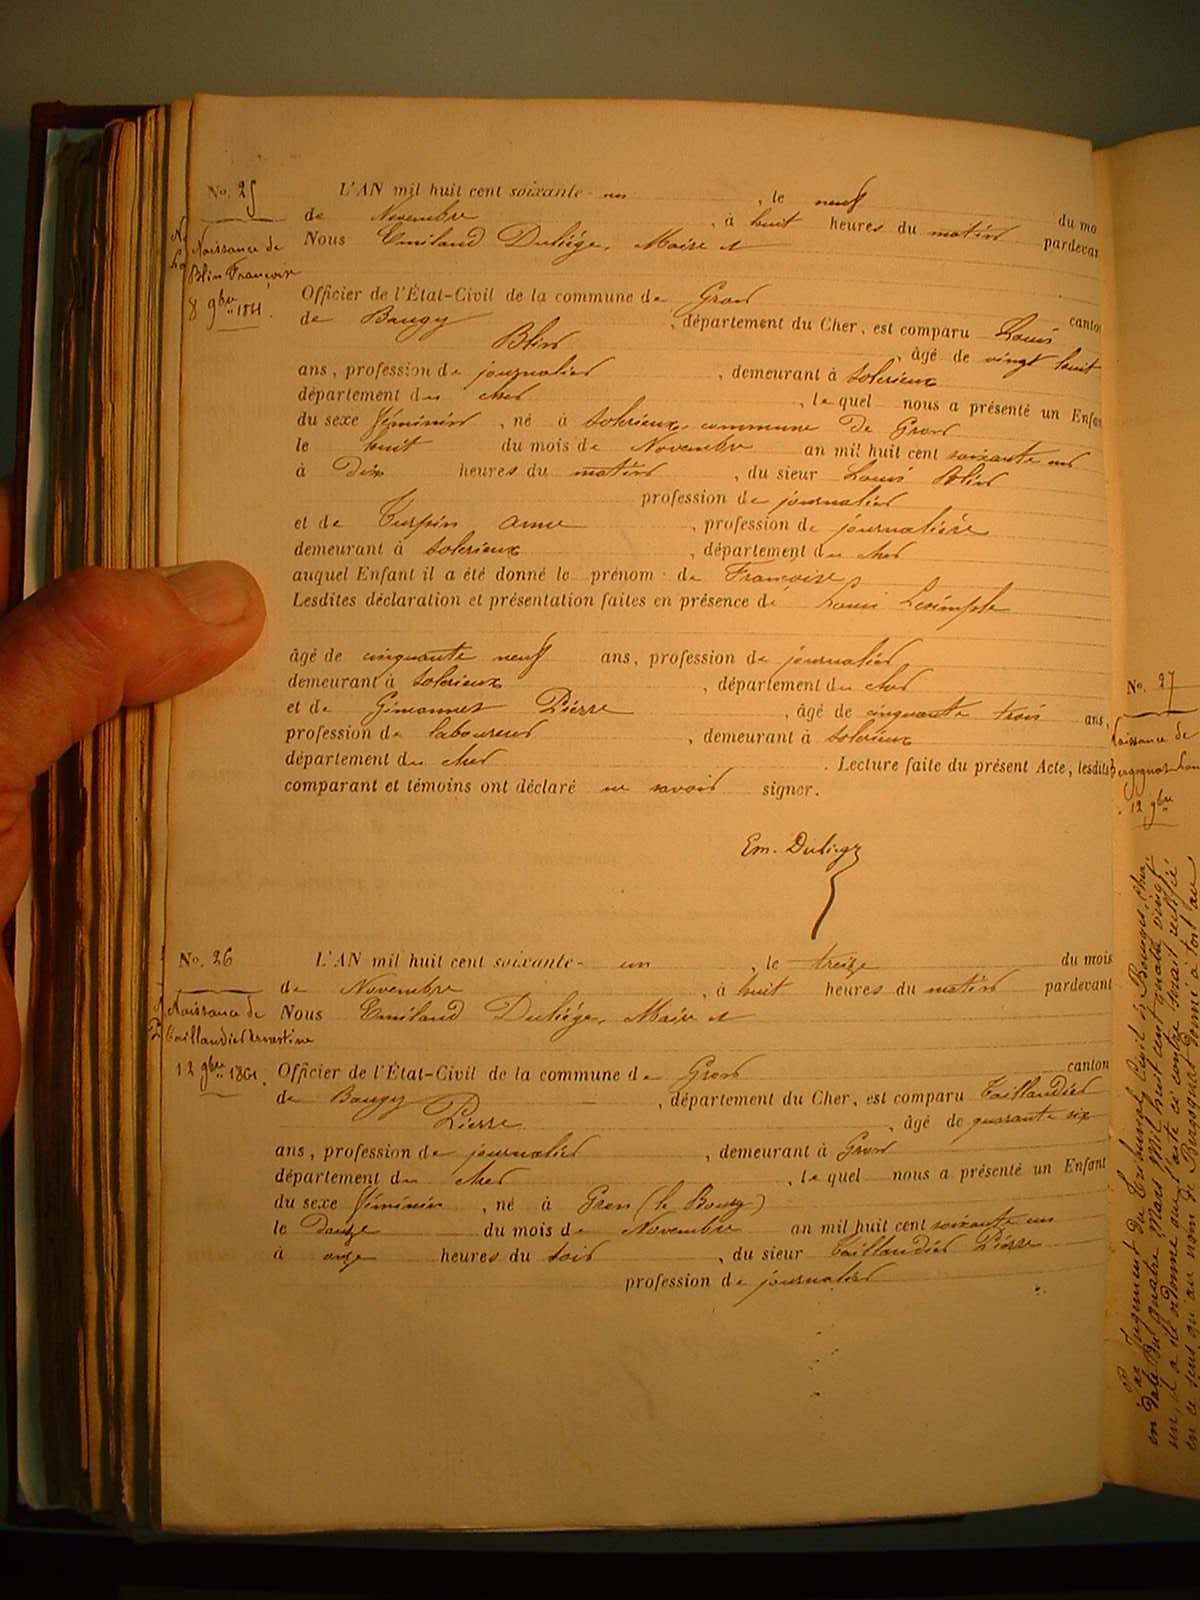 No. 25
Naissance de
Blin Françoise
8 9bre 1861.
L'AN mil huit cent soixante- un , le neuf du mo
de Novembre , à huit heures du matin pardevan
Nous Emiland Duliège, Maire et
Officier de l'État-Civil de la commune de Gron canton
de Baugy , département du Cher, est comparu Louis
Blin , âgé de vingt huit
ans, profession de journalier , demeurant à Solerieux
département du cher , lequel nous a présenté un Enfan
du sexe féminin , né à Solerieux commune de Gron
le huit du mois de Novembre an mil huit cent soixante un
à Dix heures du matin , du sieur Louis Blin
profession de journalier
et de Turpin Anne , profession de journalière
demeurant à Solerieux , département du cher
auquel Enfant il a été donné le prénom de Françoise,
Lesdites déclaration et présentation faites en présence de Louis Lesimple
âgé de cinquante neuf ans, profession de journalier
demeurant à Solerieux , département du cher
et de Gimonnet Pierre , âgé de cinquante trois ans,
profession de laboureur , demeurant à Solerieux
département du cher . Lecture faite du présent Acte, lesdits
comparant et témoins ont déclaré ne savoir signer.
Em. Duliège
No. 26
Naissance de
Taillandier Ernestine
12 9bre 1861.
L'AN mil huit cent soixante- un , le treize du mois
de Novembre , à huit heures du matin pardevant
Nous Emiland Duliège, Maire et
Officier de l'État-Civil de la commune de Gron canton
de Baugy , département du Cher, est comparu Taillandier
Pierre , âgé de quarante six
ans, profession de journalier , demeurant à Gron
département du cher , lequel nous a présenté un Enfant
du sexe féminin , né à Gron (le Bourg)
le Douze du mois de Novembre an mil huit cent soixante un
à onze heures du soir , du sieur Taillandier Pierre
profession de journalier
No. 27
aissance de
12 9bre
Par Jugement du Tribunal Civil de Bourges, Cher,
en date du quatre Mars Mil huit cent quatre vingt
un, il a été ordonné que l'acte ci contre serait rectifié
en ce sens qu'au nom de Bergognat donné à tort au